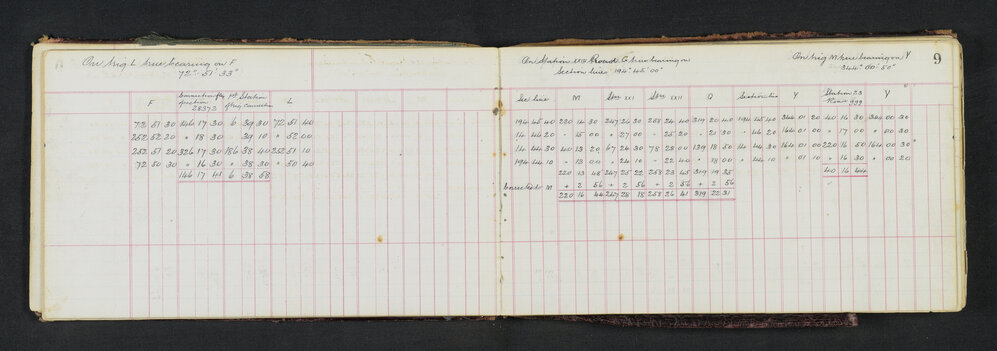 On trig L true bearing on F
72° 51' 33"
F Connection flg pt Station L
28373
72 51 30 146 17 30 6 39 30 72 51 40
252 52 20 " 18 30 " 39 10 " 52 00
252 51 20 326 17 30 186 58 40 252 51 10
72 50 30 " 16 30 " 38 30 " 50 40
146 17 41 6 38 58
9
On Station XXIV Round C true bearing on
Section line 194° 45' 00"
On trig M true bearing on Y
344° 00' 50"
Sec line M Stn XXI Stn XXII Q Section line Y Station 23 Y
194 45 40 220 14 30 247 26 30 258 24 40 319 20 40 194 45 40 344 01 20 40 16 30 344 00 30
14 44 20 " 15 00 " 27 00 " 25 20 " 21 30 " 44 20 164 01 00 " 17 00 " 00 30
14 44 30 40 13 20 67 24 30 78 28 00 139 18 50 14 44 30 164 01 00 220 16 50 164 00 30
194 44 10 " 13 00 " 24 10 " 22 40 " 18 00 " 44 10 " 01 10 " 16 30 " 00 20
220 13 48 247 25 22 258 23 45 319 19 35 40 16 44
Corrected M + 2 56 + 2 56 + 2 56 + 2 56
220 16 44 247 28 18 258 26 41 319 22 31